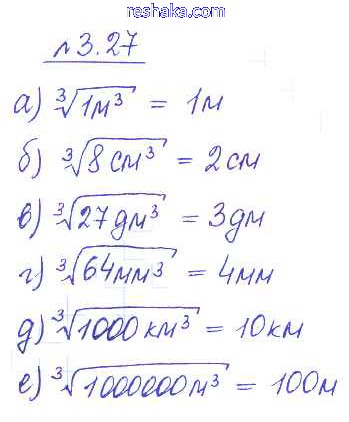 reshaka.com
№3.27
а) ∛1м³ = 1м
б) ∛8см³ = 2см
в) ∛27дм³ = 3дм
г) ∛64мм³ = 4мм
д) ∛1000км³ = 10км
е) ∛1000000м³ = 100м